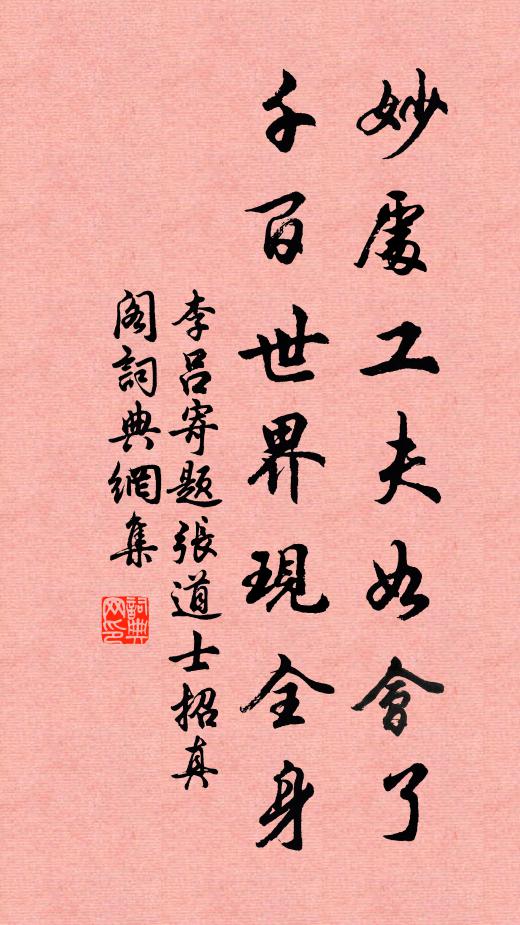 妙處工夫如會了
千百世界現全身
李呂寄題張道士招真
閣詞典網集
詞典網印